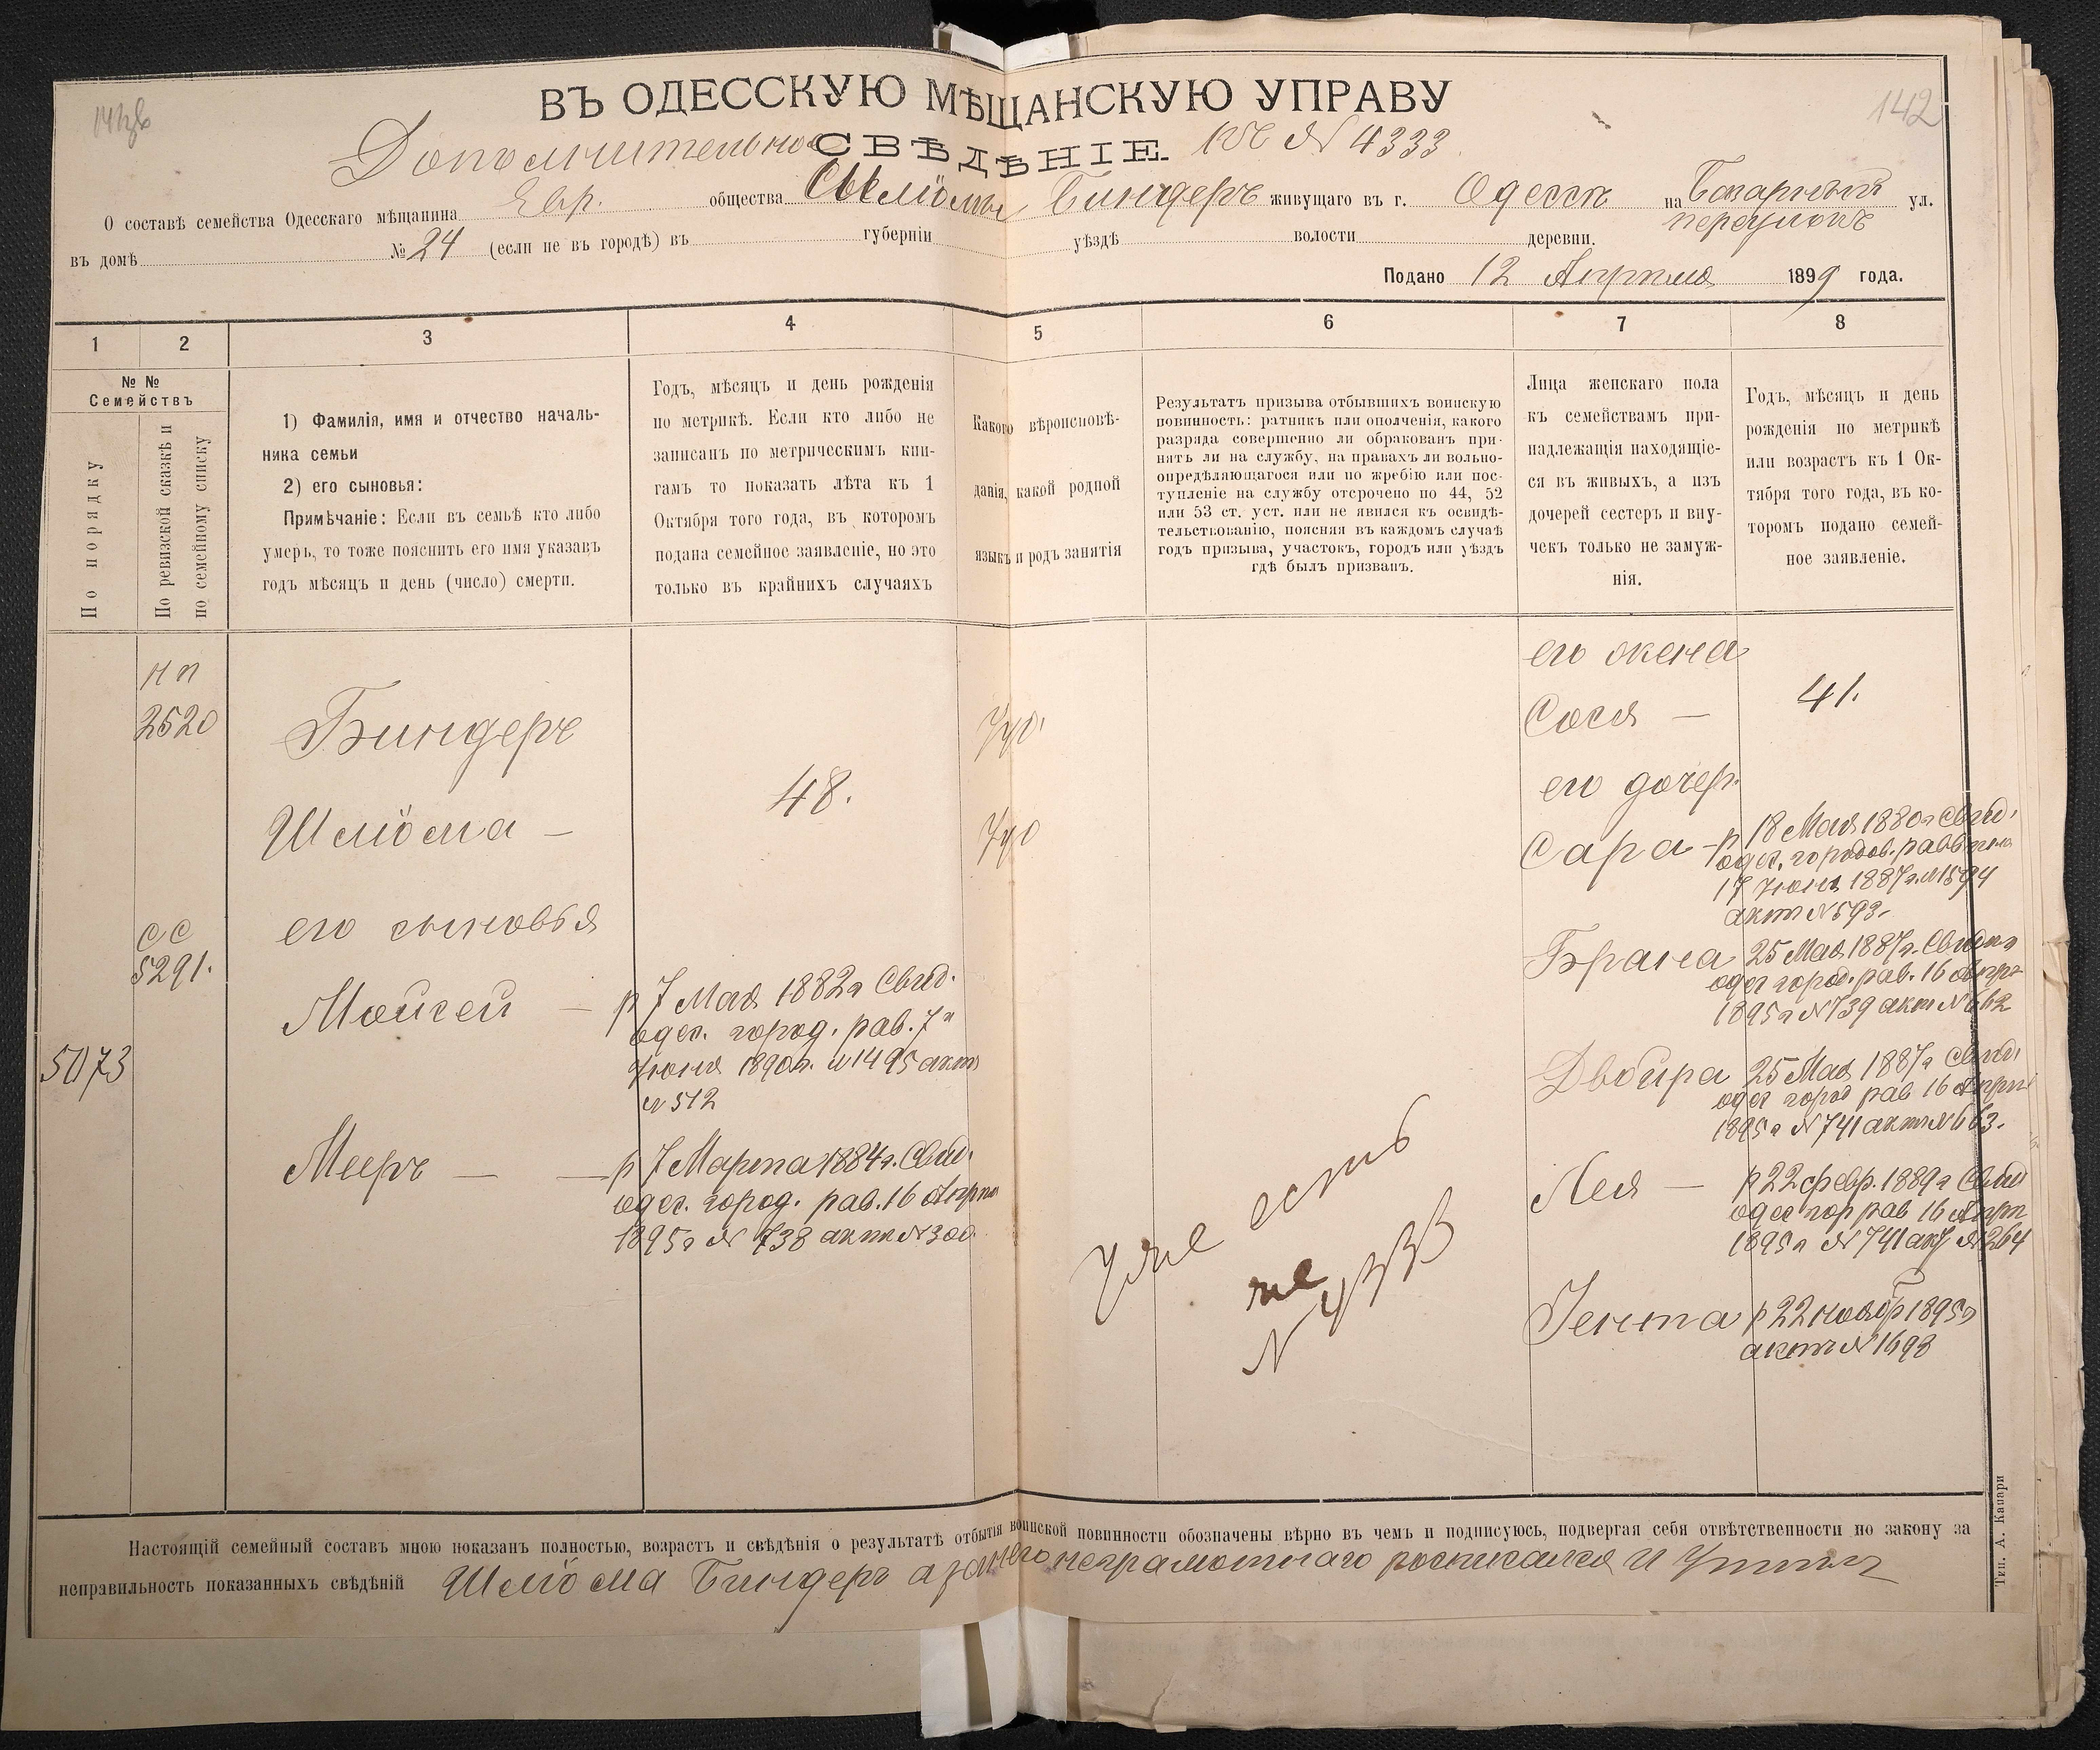 142
ВЪ ОДЕССКУЮ МѢЩАНСКУЮ УПРАВУ
Дополнительное СВѢДѢНІЕ. къ № 4333
О составѣ семейства Одесскаго мѣщанина Евр. общества Шлiомы Биндеръ живущаго въ г. Одессѣ на Базарный переулокъ ул.
въ домѣ № 24 (если не въ городѣ) въ губерніи уѣздѣ волости деревни.
Подано 12 Апрѣля 1899 года.
1 2 3 4 5 6 7 8
№ №
Семействъ
По порядку
По ревизской сказкѣ и
по семейному списку
1) Фамилія, имя и отчество началь-
ника семьи
2) его сыновья:
Примѣчаніе: Если въ семьѣ кто либо
умеръ, то тоже пояснить его имя указавъ
годъ мѣсяцъ и день (число) смерти.
Годъ, мѣсяцъ и день рожденія
по метрикѣ. Если кто либо не
записанъ по метрическимъ кни-
гамъ то показать лѣта къ 1
Октября того года, въ которомъ
подана семейное заявленіе, но это
только въ крайнихъ случаяхъ
Какого вѣроисповѣ-
данія, какой родной
языкъ и родъ занятія
Результатъ призыва отбывшихъ воинскую
повинность: ратникъ или ополченія, какого
разряда совершенно ли обракованъ при-
нятъ ли на службу, на правахъ ли вольно-
опредѣляющагося или по жребію или пос-
тупленіе на службу отсрочено по 44, 52
или 53 ст. уст. или не явился къ освидѣ-
тельствованію, поясняя въ каждомъ случаѣ
годъ призыва, участокъ, городъ или уѣздъ
гдѣ былъ призванъ.
Лица женскаго пола
къ семействамъ при-
надлежащія находящіе-
ся въ живыхъ, а изъ
дочерей сестеръ и вну-
чекъ только не замуж-
нія.
Годъ, мѣсяцъ и день
рожденія по метрикѣ
или возрастъ къ 1 Ок-
тября того года, въ ко-
торомъ подано семей-
ное заявленіе.
5073
нп
2520
сс
5291.
Биндеръ
Шлiома —
48.
его сыновья
Мойсей — р 7 Мая 1882г Свид.
одес. город. рав. 7го
Июня 1890г. №1495 актъ
№ 512
Мееръ — — р 7 Марта 1884г. Свид.
одес. город. рав. 16 Апрѣля
1895г № 738 актъ № 300.
Иуд.
Иуд
Уже есть
на
№ 4333
его жена
Сося — 41.
его дочер.
Сара — р 18 Мая 1880г Свид.
одес. городов. раввина
17 Июня 1887г. №1594
актъ № 593.
Брана 25 Мая 1887г. Свид
одес город. рав. 16 Апрѣ
1895г № 739 актъ № 662
Двойра 25 Мая 1887г Свид.
одес город рав 16 Апрѣл
1895г № 741 актъ № 663.
Лея — р 22 февр. 1889г Свид
одес гор рав 16 Апрѣл
1895г № 741 акт №264
Гента р 22 ноябр 1895г
актъ № 1698
Настоящій семейный составъ мною показанъ полностью, возрастъ и свѣдѣнія о результатѣ отбытія воинской повинности обозначены вѣрно въ чемъ и подписуюсь, подвергая себя отвѣтственности по закону за
неправильность показанныхъ свѣдѣній Шлiома Биндеръ а за него неграмотнаго росписался И
Тип. А. Капари